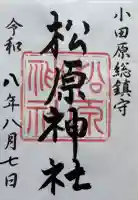 小田原総鎮守
松原神社
令和八年八月七日